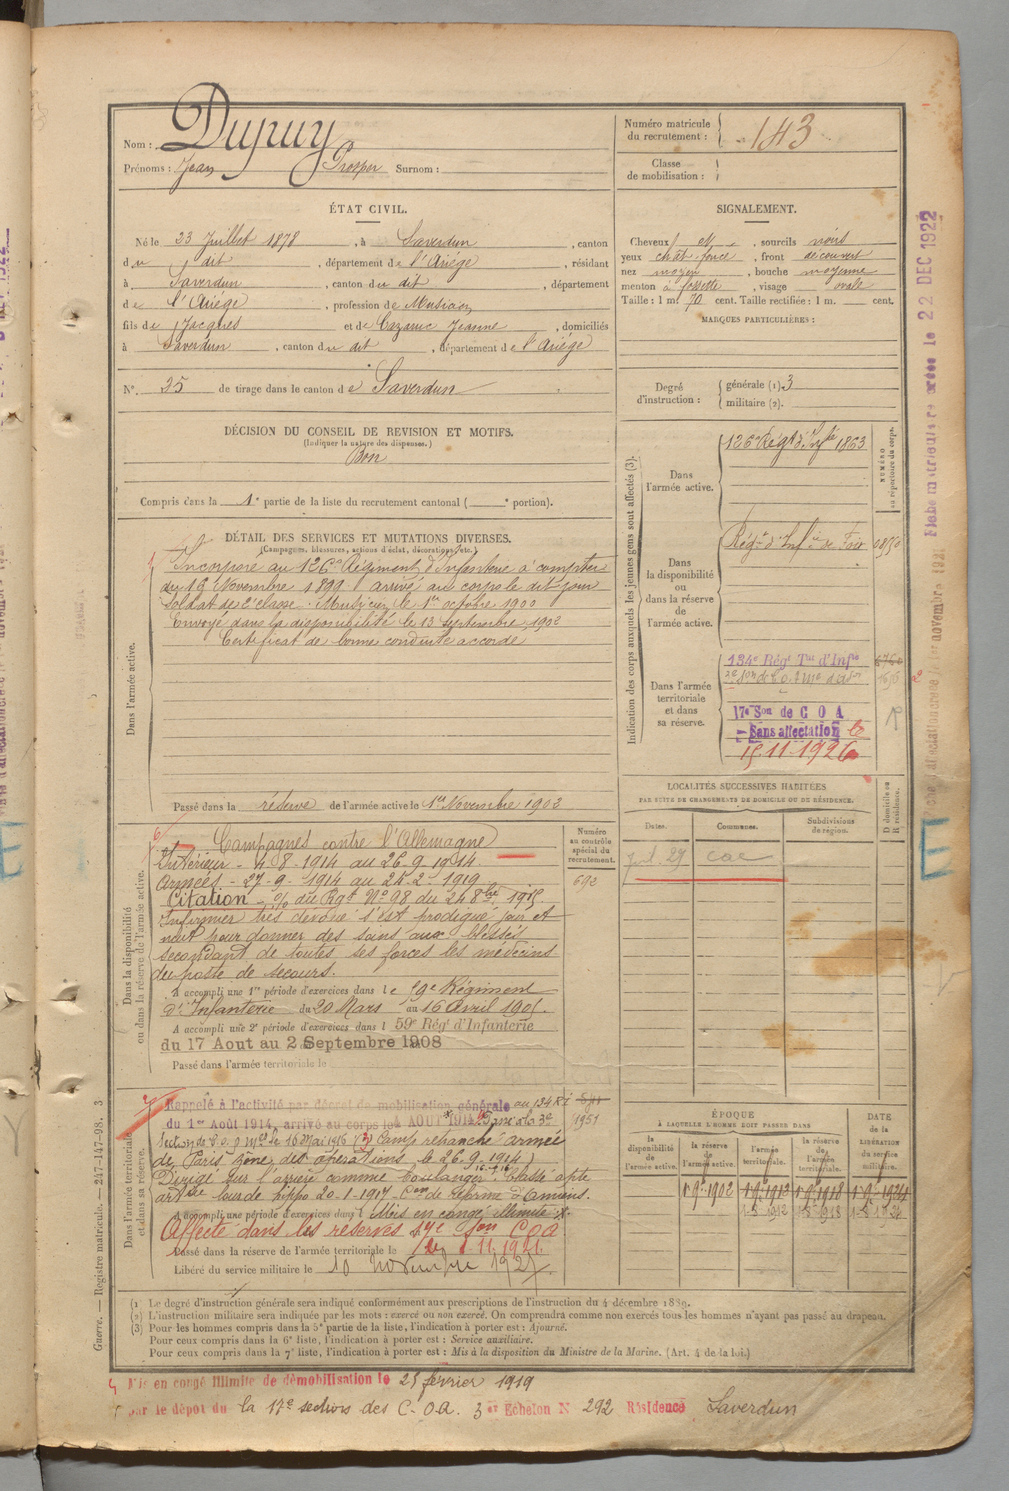 Nom : Dupuy
Prénoms : Jean Prosper Surnom :
Numéro matricule du recrutement : 143
Classe de mobilisation :
ÉTAT CIVIL.
Né le 23 Juillet 1878, à Saverdun, canton
du dit, département de l'Ariège, résidant
à Saverdun, canton du dit, département
de l'Ariège, profession de Musicien
fils de Jacques et de Cazanne Jeanne, domiciliés
à Saverdun, canton du dit, département de l'Ariège
N° 35 de tirage dans le canton de Saverdun
SIGNALEMENT.
Cheveux et, sourcils noirs
yeux chât. foncé, front découvert
nez moyen, bouche moyenne
menton à fossette, visage ovale
Taille : 1 m. 70 cent. Taille rectifiée : 1 m. cent.
MARQUES PARTICULIÈRES :
Degré d'instruction : générale (1). 3
militaire (2).
DÉCISION DU CONSEIL DE REVISION ET MOTIFS.
(Indiquer la nature des dispenses.)
Bon
Compris dans la 1e partie de la liste du recrutement cantonal ( e portion).
DÉTAIL DES SERVICES ET MUTATIONS DIVERSES.
(Campagnes, blessures, actions d'éclat, décorations, etc.)
Dans l'armée active.
Incorporé au 126e Régiment d'Infanterie à compter
du 16 Novembre 1899 arrivé au corps le dit jour
soldat de 2e classe. Musicien le 1er octobre 1900
Envoyé dans la disponibilité le 13 septembre 1902
Certificat de bonne conduite accordé
Passé dans la réserve de l'armée active le 1er Novembre 1902
Indication des corps auxquels les jeunes gens sont affectés (3).
NUMÉRO au répertoire du corps.
Dans l'armée active.
126e Régt d'Infie 1863
Dans la disponibilité ou dans la réserve de l'armée active.
Régt d'Infie de Foix
Dans l'armée territoriale et dans sa réserve.
134e Régt Tal d'Infie
17e Son de C O A
Sans affectation le
15.11.1926
LOCALITÉS SUCCESSIVES HABITÉES
PAR SUITE DE CHANGEMENTS DE DOMICILE OU DE RÉSIDENCE.
Dates.
Communes.
Subdivisions de région.
D domicile ou R résidence.
Dans la disponibilité ou dans la réserve de l'armée active.
Numéro au contrôle spécial du recrutement.
692
Campagnes contre l'Allemagne
Intérieur - 4.8.1914 au 26.9.1914.
Armées - 27.9.1914 au 24.2.1919
Citation - O/ du Rgt N° 98 du 24 8bre 1915
Infirmier très dévoué s'est prodigué jour et
nuit pour donner des soins aux blessés
secondant de toutes ses forces les médecins
du poste de secours.
A accompli une 1re période d'exercices dans le 59e Régiment
d'Infanterie du 20 Mars au 16 Avril 1905.
A accompli une 2e période d'exercices dans l 59e Régt d'Infanterie
du 17 Aout au 2 Septembre 1908
Passé dans l'armée territoriale le
Dans l'armée territoriale et dans sa réserve.
Rappelé à l'activité par décret de mobilisation générale au 134 RI
du 1er Août 1914, arrivé au corps le 4 AOUT 1914
1951
Section de C.O.A. le 16 Mai 1916 Camp retranché armée
de Paris zône des opérations le 26.9.1914)
Dirigé sur l'arrière comme boulanger Classé apte
artie lourde hippo 20-1-1917
A accompli une période d'exercices dans l Mis en congé illimité
Affecté dans les réserves 17e Son COA
Passé dans la réserve de l'armée territoriale le 11. 1921
Libéré du service militaire le 10 novembre 1927
ÉPOQUE
À LAQUELLE L'HOMME DOIT PASSER DANS
la disponibilité de l'armée active.
la réserve de l'armée active.
l'armée territoriale.
la réserve de l'armée territoriale.
DATE de la LIBÉRATION du service militaire.
1.9bre 1902 1.9bre 1912 1.9bre 1918 1.9bre 1924
(1) Le degré d'instruction générale sera indiqué conformément aux prescriptions de l'instruction du 4 décembre 1889.
(2) L'instruction militaire sera indiquée par les mots : exercé ou non exercé. On comprendra comme non exercés tous les hommes n'ayant pas passé au drapeau.
(3) Pour les hommes compris dans la 5e partie de la liste, l'indication à porter est : Ajourné.
Pour ceux compris dans la 6e liste, l'indication à porter est : Service auxiliaire.
Pour ceux compris dans la 7e liste, l'indication à porter est : Mis à la disposition du Ministre de la Marine. (Art. 4 de la loi.)
Mis en congé illimité de démobilisation le 25 février 1919
par le dépôt du la 17e section des C.O.A. 3e Echelon N 292 Résidence Saverdun
Guerre. — Registre matricule. — 247-147-98. 3
Fiche matriculaire créée le 22 DEC 1922